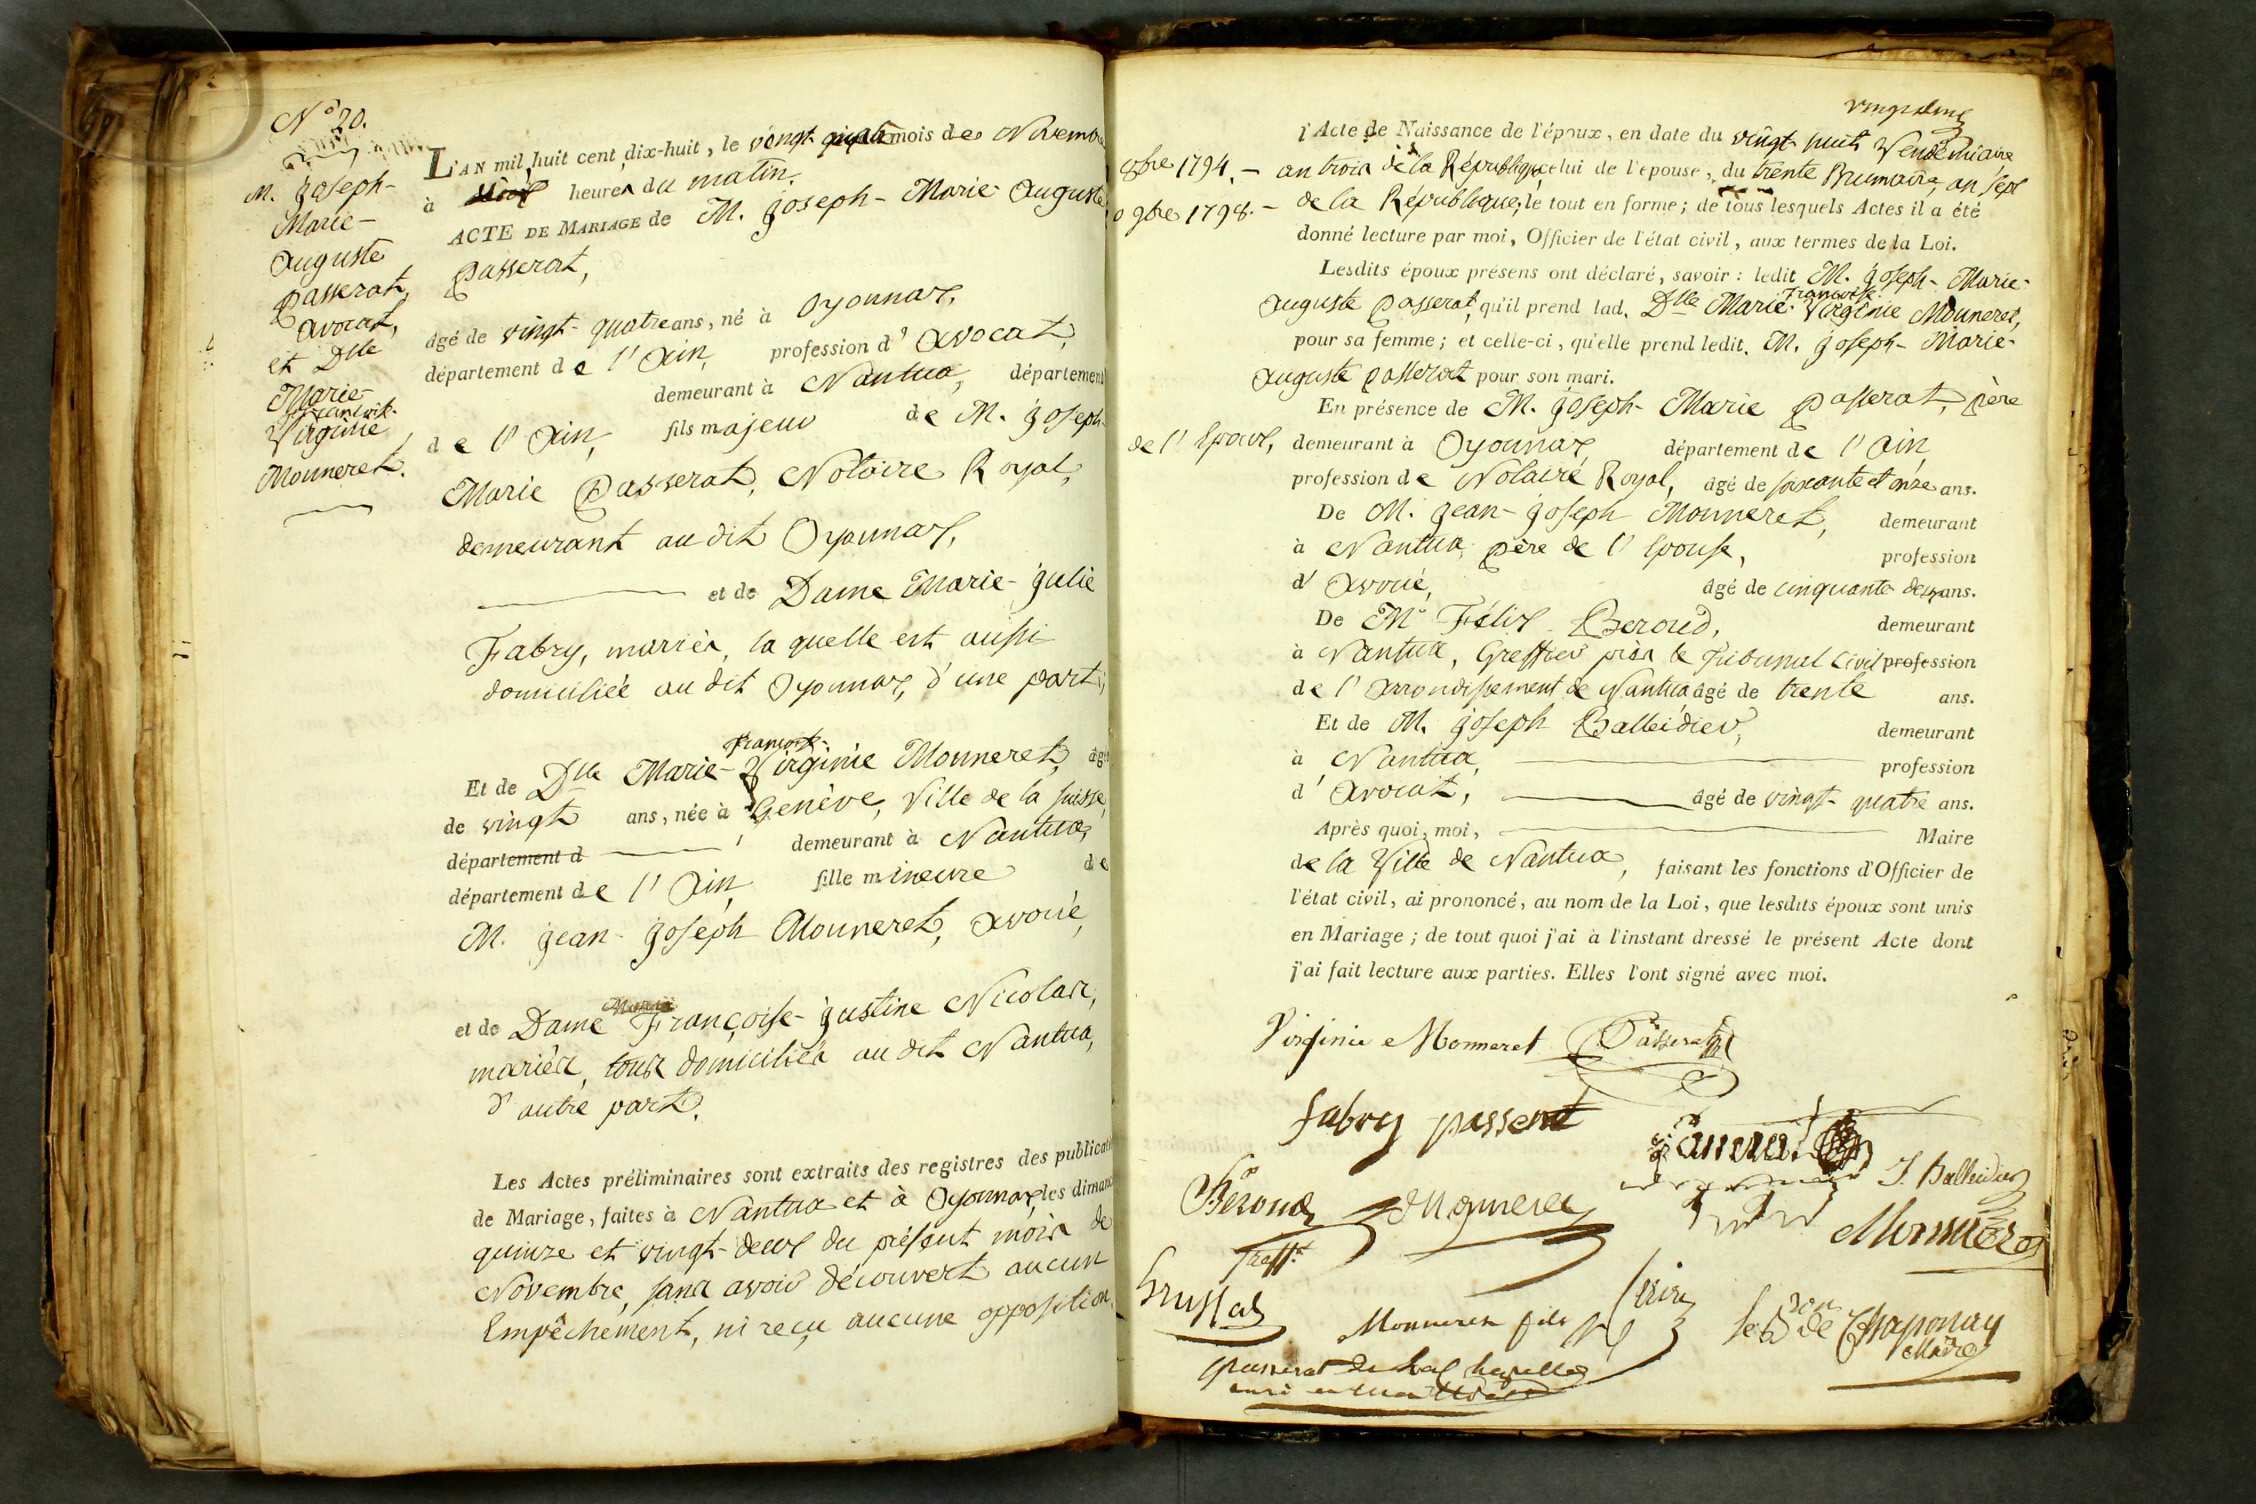 N° 20.
M. Joseph-
Marie-
Auguste
Passerat,
avocat,
et Dlle
Marie-
françoise-
Virginie
Monneret.
L'AN mil huit cent dix-huit, le vingt mois de Novembre
à heures du matin.
ACTE DE MARIAGE de M. Joseph-Marie Auguste
Passerat,
âgé de vingt-quatre ans, né à Oyonnax,
département de l'Ain, profession d'avocat,
demeurant à Nantua, département
de l'Ain, fils majeur de M. Joseph
Marie Passerat, Notaire Royal,
demeurant au dit Oyonnax,
et de Dame Marie-Julie
Fabry, mariés, la quelle est aussi
domiciliée au dit Oyonnax, d'une part;
françoise-
Et de Dlle Marie-Virginie Monneret, âgé
de vingt ans, née à Genève, Ville de la Suisse,
département d demeurant à Nantua,
département de l'Ain, fille mineure de
M. Jean-Joseph Monneret, avoué,
et de Dame Françoise-Justine Nicolas,
mariés, tous domiciliés au dit Nantua,
d'autre part.
Les Actes préliminaires sont extraits des registres des publicat
de Mariage, faites à Nantua et à Oyonnax, les dimanc
quinze et vingt-deux du présent mois de
Novembre, sans avoir découvert aucun
Empêchement, ni reçu aucune opposition,
vingt deux
l'Acte de Naissance de l'époux, en date du vingt huit Vendémiaire
8bre 1794. - an trois de la République, celui de l'épouse, du trente Brumaire an sept
9bre 1798. - de la République; le tout en forme; de tous lesquels Actes il a été
donné lecture par moi, Officier de l'état civil, aux termes de la Loi.
Lesdits époux présens ont déclaré, savoir: ledit M. Joseph-Marie-
françoise
Auguste Passerat, qu'il prend lad. Dlle Marie-Virginie Monneret,
pour sa femme; et celle-ci, qu'elle prend ledit. M. Joseph-Marie-
Auguste Passerat pour son mari.
En présence de M. Joseph-Marie Passerat, père
de l'Epoux, demeurant à Oyonnax, département de l'Ain,
profession de Notaire Royal, âgé de soixante et onze ans.
De M. Jean-Joseph Monneret, demeurant
à Nantua, père de l'Epouse, profession
d'avoué, âgé de cinquante deux ans.
De Mr Félix Beroud, demeurant
à Nantua, Greffier près le Tribunal Civil profession
de l'arrondissement de Nantua âgé de trente ans.
Et de M. Joseph Balleidier, demeurant
à Nantua, profession
d'avocat, âgé de vingt-quatre ans.
Après quoi, moi, Maire
de la Ville de Nantua, faisant les fonctions d'Officier de
l'état civil, ai prononcé, au nom de la Loi, que lesdits époux sont unis
en Mariage; de tout quoi j'ai à l'instant dressé le présent Acte dont
j'ai fait lecture aux parties. Elles l'ont signé avec moi.
Virginie Monneret Passerat
fabry passerat
Béroud Monneret J. Balleidier
greff.
Monneret fils le Bon de Chaponay
Maire
passerat de la chapelle